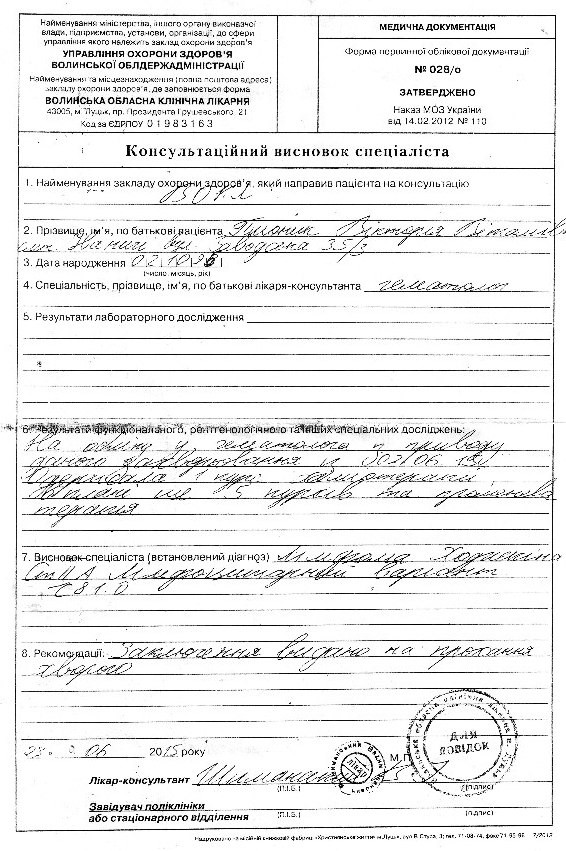 Найменування міністерства, іншого органу виконавчої
влади, підприємства, установи, організації, до сфери
управління якого належить заклад охорони здоров'я
УПРАВЛІННЯ ОХОРОНИ ЗДОРОВ'Я
ВОЛИНСЬКОЇ ОБЛДЕРЖАДМІНІСТРАЦІЇ
Найменування та місцезнаходження (повна поштова адреса)
закладу охорони здоров'я, де заповнюється форма
ВОЛИНСЬКА ОБЛАСНА КЛІНІЧНА ЛІКАРНЯ
43005, м Луцьк, пр. Президента Грушевського, 21
Код за ЄДРПОУ 01983163
МЕДИЧНА ДОКУМЕНТАЦІЯ
Форма первинної облікової документації
№ 028/о
ЗАТВЕРДЖЕНО
Наказ МОЗ України
від 14.02 2012 № 110
Консультаційний висновок спеціаліста
1. Найменування закладу охорони здоров'я, який направив пацієнта на консультацію
ВОКЛ
2. Прізвище, ім'я, по батькові пацієнта Вікторія Віталіївн
вул Заводська 35/3
3. Дата народження 02 10
(число, місяць, рік)
4. Спеціальність, прізвище, ім'я, по батькові лікаря-консультанта гематолог
5. Результати лабораторного дослідження
6. Результати функціонального, рентгенологічного та інших спеціальних досліджень:
На обліку у гематолога п приводу
даного захворювання з 06
Одержала 1 курс хіміотерапії
ще 5 курсів та променева
терапія
7. Висновок спеціаліста (встановлений діагноз) Лімфома Ходжкіна
Ст II А Лімфоцитарний варіант
С 81.0
8. Рекомендації: Заключення видано на прохання
хворого
06 2015 року
М.П.
Лікар-консультант
(П.І.Б.)
(підпис)
ЛІКАР
ДЛЯ
ДОВІДОК
Завідувач поліклініки
або стаціонарного відділення
(П.І.Б.)
(підпис)
Надруковано на місній книжковій фабриці «Християнське життя» м.Луцьк, вул В.Стуса, 3; тел. 71-08-74, факс 71-95-96